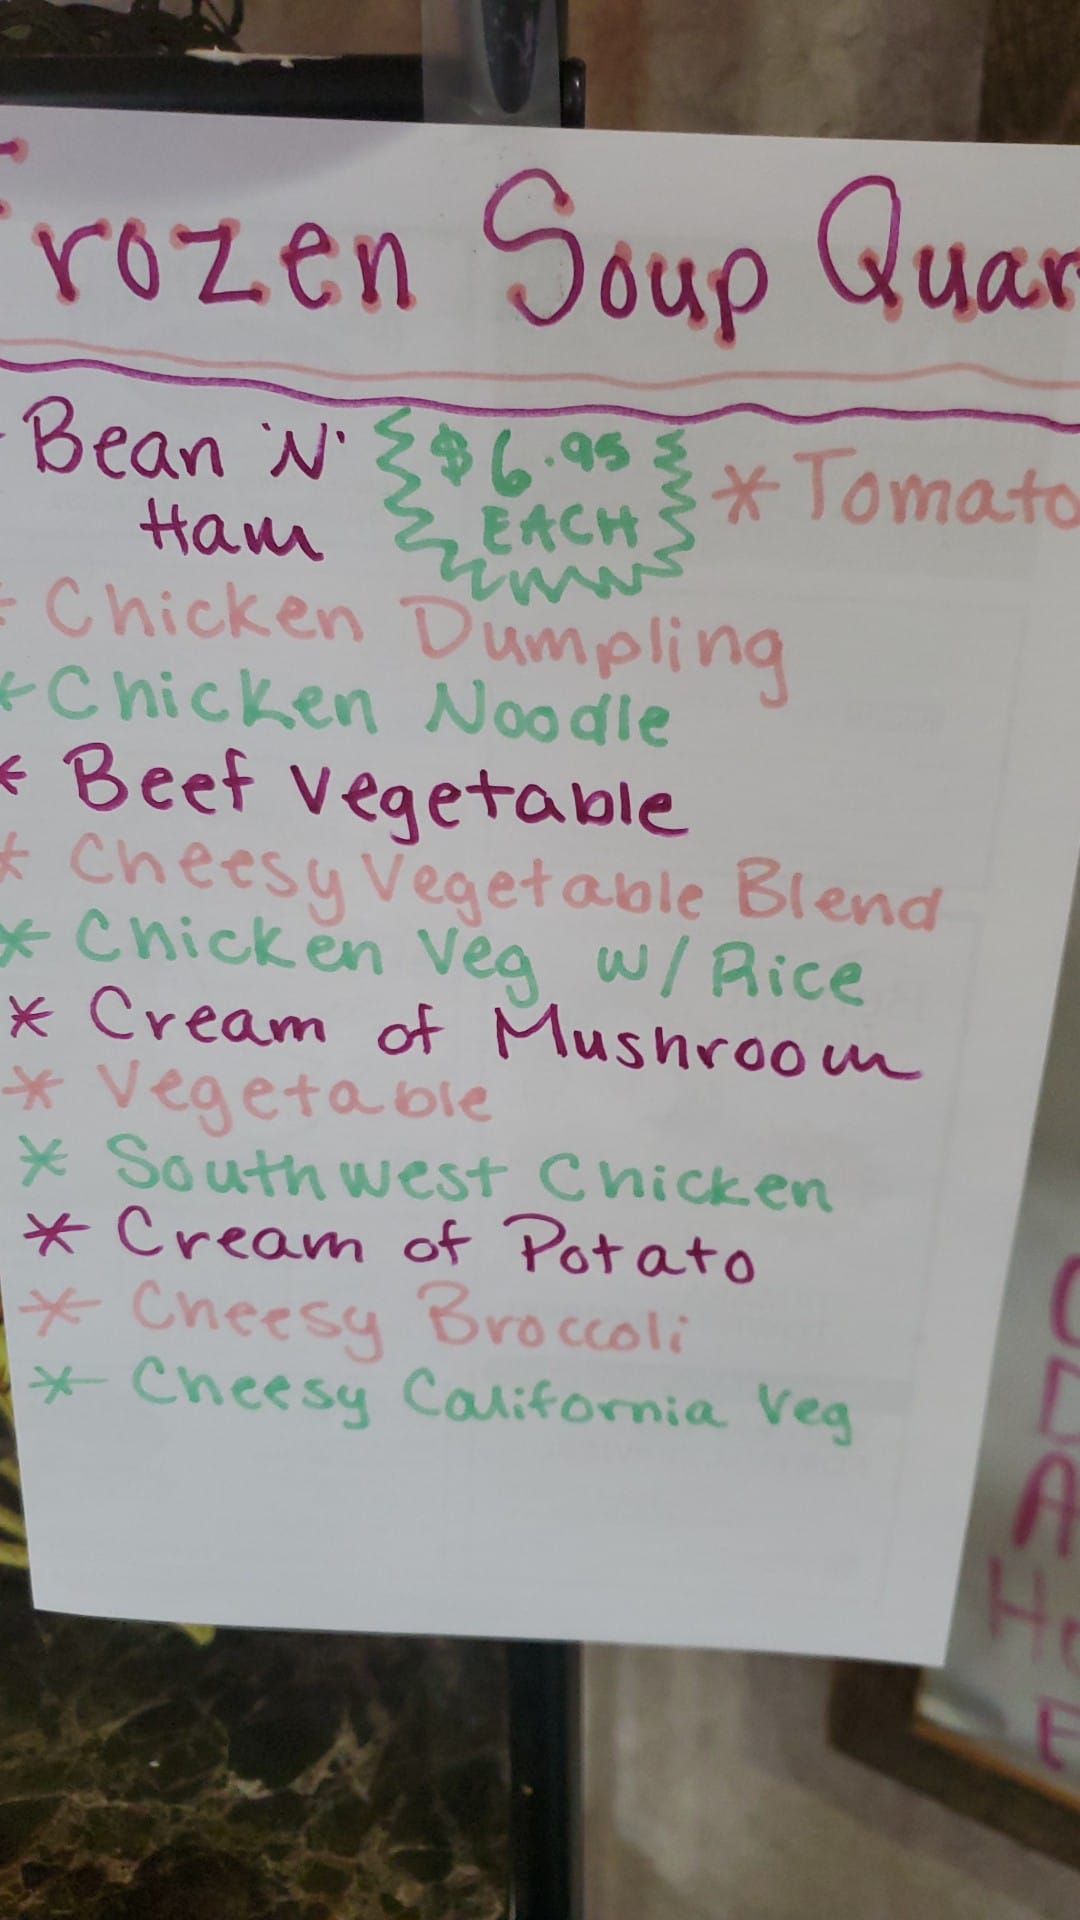 Frozen Soup Quar
Bean 'N'
Ham
$6.95
EACH
* Tomato
* Chicken Dumpling
* Chicken Noodle
* Beef Vegetable
* Cheesy Vegetable Blend
* Chicken Veg w/ Rice
* Cream of Mushroom
* Vegetable
* Southwest Chicken
* Cream of Potato
* Cheesy Broccoli
* Cheesy California Veg